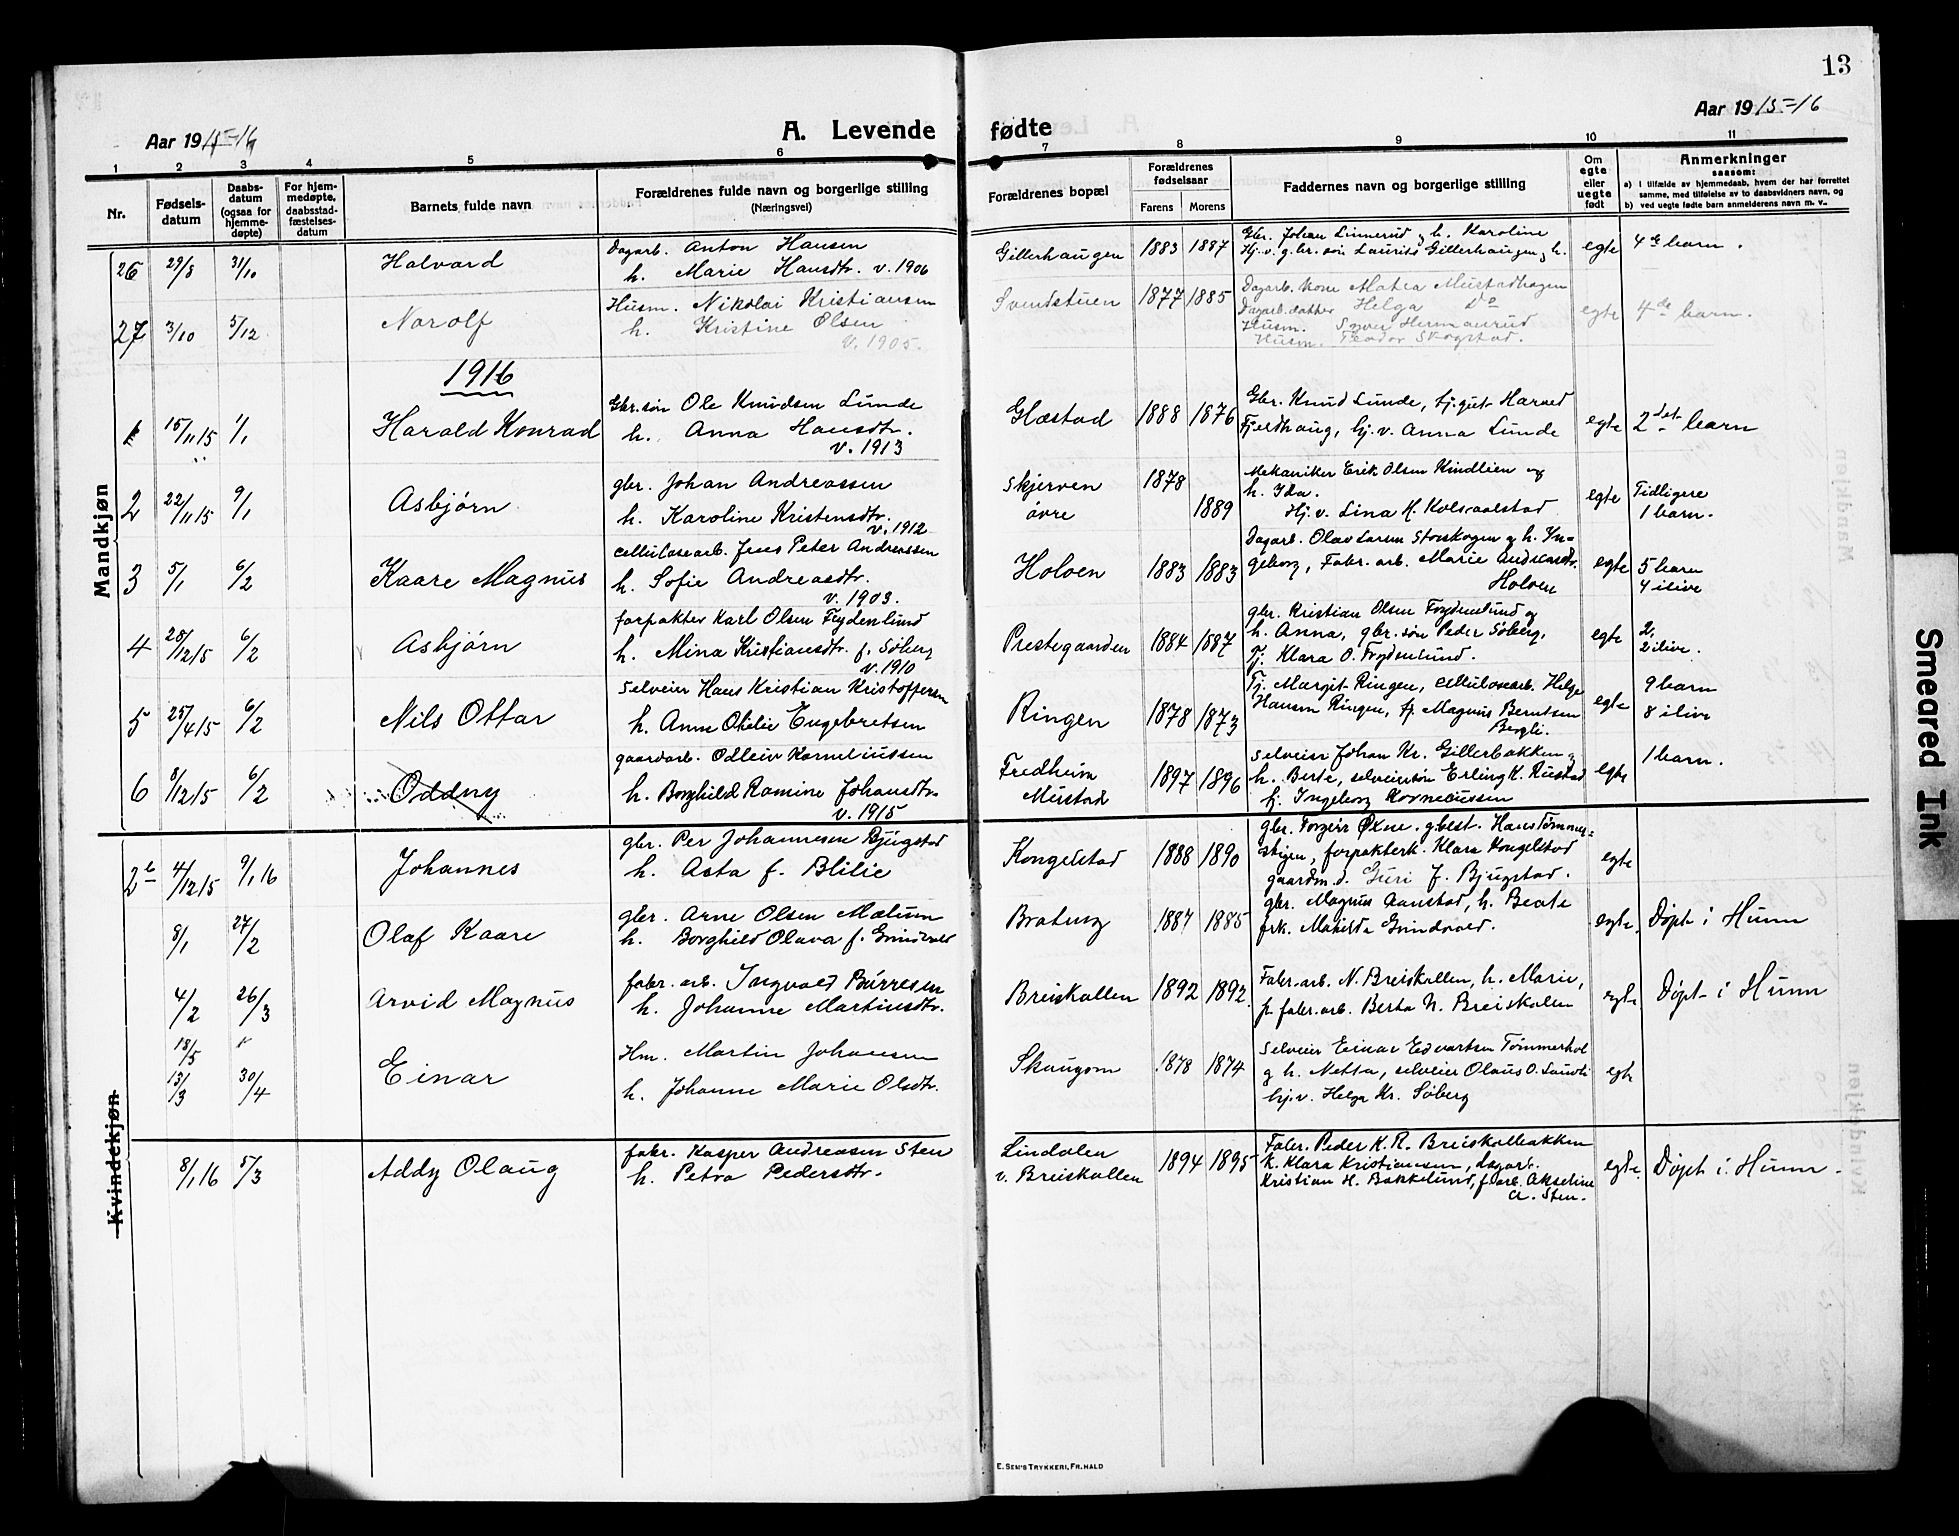 13
Aar 1915-16
A. Levende fødte
Aar 1915-16
1 2 3 4 5 6 7 8 9 10 11
Nr.
Fødsels-
datum
Daabs-
datum
(ogsaa for
hjemme-
døpte)
For hjem-
medøpte,
daabsstad-
fæstelses-
datum
Barnets fulde navn
Forældrenes fulde navn og borgerlige stilling
(Næringsvei)
Forældrenes bopæl
Forældrenes
fødselsaar
Farens Morens
Faddernes navn og borgerlige stilling
Om
egte
eller
uegte
født
Anmerkninger
saasom:
a) I tilfælde av hjemmedaab, hvem der har forrettet
samme, med tilføielse av to daabsvidners navn, og
b) ved uegte fødte barn anmelderens navn m. v..
Mandkjøn
26 29/8 31/10 Halvard
Dagarb. Anton Hansen
h. Marie Hansdtr. v. 1906
Gillerhaugen 1883 1887
Gbr. Johan Linnerud, h. Karoline
Hj.v. gbr. søn Laurits Gillerhaugen, h.
egte 4de barn.
27 3/10 5/12 Narolf
Husm. Nikolai Kristiansen
h. Kristine Olsen
v. 1905.
Svendstuen 1877 1885
Dagarb. kone Matea Mustadhagen
Dagarb. datter Helga do
Husm. Syver Hermanrud
Husm. Teodor Skogstad.
egte 4de barn.
1916
1 15/11 15 1/1 Harald Konrad
Gbr. søn Ole Knudsen Lunde
h. Anna Hansdtr.
v. 1913
Glæstad 1888 1876
Gbr. Knud Lunde, tj.gut Harald
Fjeldhaug, hj.v. Anna Lunde
egte 2det barn
2 22/11 15 9/1 Asbjørn
gbr. Johan Andreassen
h. Karoline Kristensdtr.
v. 1912
Skjerven
øvre
1878
1889
Mekaniker Erik Olsen Kindlien og
h. Ida.
Hj. v. Lina H. Kolsvaalstad
egte
Tidligere
1 barn.
3 5/1 6/2 Kaare Magnus
Cellulosearb. Jens Peter Andreassen
h. Sofie Andreasdtr.
v. 1903.
Holven 1883 1883
Dagarb. Olav Larsen Storskogen og h. In-
geborg, Fabr. arb. Marie Andreasdtr.
Holven
egte
5 barn
4 ilive
4 28/12 15 6/2 Asbjørn
forpakter Karl Olsen Frydenlund
h. Mina Kristiansdtr. f. Søberg
v. 1910
Prestegaarden 1884 1887
gbr. Kristian Olsen Frydenlund og
h. Anna, gbr. søn Peder Søberg,
Tj. Klara O. Frydenlund.
egte
2,
2 ilive.
5 25/4 15 6/2 Nils Ottar
Selveier Hans Kristian Kristoffersen
h. Anne Otilie Engebretsen
Ringen 1878 1873
Tj. Margit Ringen, Cellulosearb. Helge
Hansen Ringen, tj. Magnus Berntsen
Bergli.
egte
9 barn
8 ilive
6 8/12 15 6/2 Oddny
gaardarb. Odleiv Korneliussen
h. Borghild Ramine Johansdtr.
v. 1915
Fredheim
Mustad
1897 1896
Selveier Johan Kr. Gillerbakken og
h. Berte, selveiersøn Erling K. Rustad
tj. Ingeborg Korneliussen
egte 1 barn.
2b 4/12 15 9/1 16 Johannes
gbr. Per Johannesen Bjugstad
h. Asta f. Blilie
Kongelstad 1888 1890
gbr. Torgeir Øxne. gbest. Hans Tømmer-
stigen, forpakterk. Klara Kongelstad
gaardm.d. Guri f. Bjugstad.
egte
9/1 27/2 Olaf Kaare
gbr. Arne Olsen Mælum
h. Borghild Olava f. Grindvold
Bratung 1887 1885
gbr. Magnus Aanstad, h. Beate
frk. Matilde Grindvold.
egte. Døpt i Hunn
4/2 26/3 Arvid Magnus
fabr. arb. Ingvald Børresen
h. Johanne Martinsdtr.
Breiskallen 1892 1892.
Fabr. arb. N. Breiskallen, h. Marie,
fr. fabr. arb. Berta N. Breiskallen
egte Døpt i Hunn
18/5
13/3 30/4 Einar
Hm. Martin Johansen
h. Johanne Marie Olsdtr.
Skaugom 1878 1874
Selveier Einar Edvartsen Tømmerhol
og h. Netta, selveier Olaus O. Sauvli
hj.v. Helga Kr. Søberg
egte
Kvindekjøn
8/1 16 5/3 Addy Olaug
fabr. Kasper Andreasen Sten
h. Petra Pedersdtr.
Lindalen
v. Breiskallen
1894 1895
Fabr. Peder K. R. Breiskallbakken
K. Klara Kristiansen, Dagarb.
Kristian H. Bakkelund, f.arb. Akseline
A. Sten.
egte. Døpt i Hunn.
E. SEM'S TRYKKERI, FR.HALD
Smeared Ink